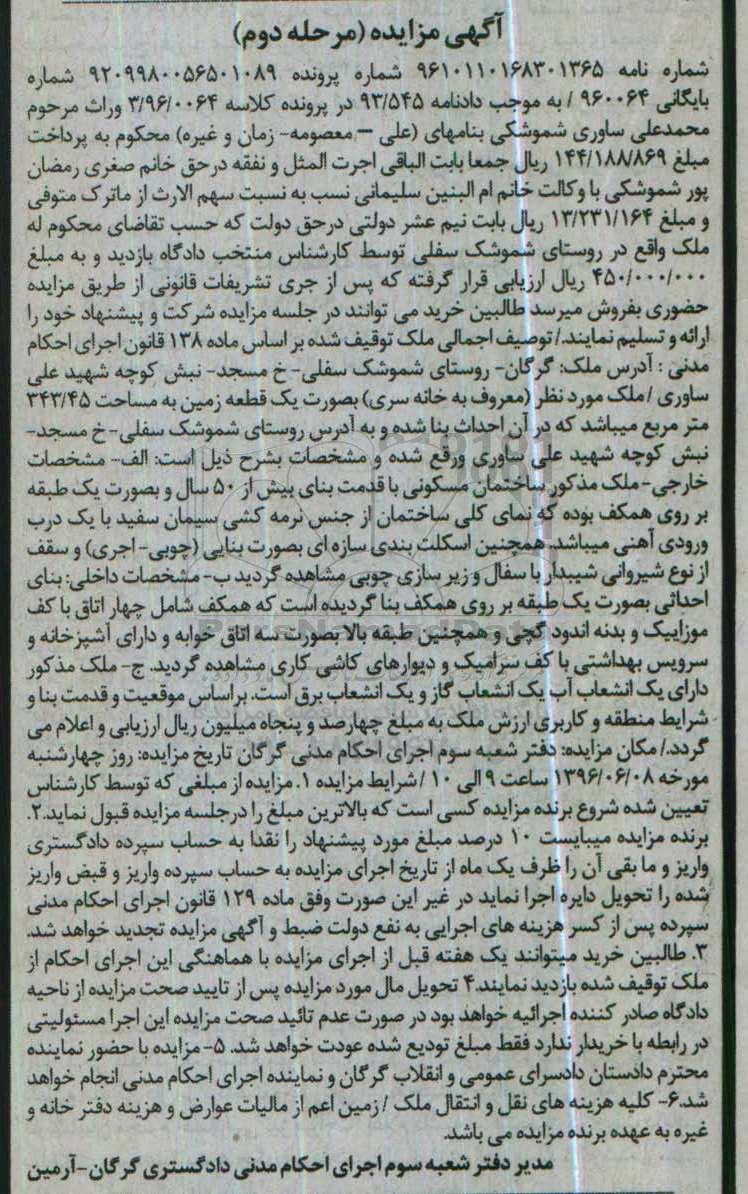 آگهی مزایده (مرحله دوم)
شماره نامه ۹۶۱۰۱۱۰۱۶۸۳۰۱۳۶۵ شماره پرونده ۹۲۰۹۹۸۰۰۵۶۵۰۱۰۸۹ شماره
بایگانی ۹۶۰۰۶۴ / به موجب دادنامه ۹۳/۵۴۵ در پرونده کلاسه ۳/۹۶/۰۰۶۴ وراث مرحوم
محمدعلی ساوری شموشکی بنامهای (علی – معصومه- زمان و غیره) محکوم به پرداخت
مبلغ ۱۴۴/۱۸۸/۸۶۹ ریال جمعا بابت الباقی اجرت المثل و نفقه درحق خانم صغری رمضان
پور شموشکی با وکالت خانم ام البنین سلیمانی نسب به نسبت سهم الارث از ماترک متوفی
و مبلغ ۱۳/۲۳۱/۱۶۴ ریال بابت نیم عشر دولتی درحق دولت که حسب تقاضای محکوم له
ملک واقع در روستای شموشک سفلی توسط کارشناس منتخب دادگاه بازدید و به مبلغ
۴۵۰/۰۰۰/۰۰۰ ریال ارزیابی قرار گرفته که پس از جری تشریفات قانونی از طریق مزایده
حضوری بفروش میرسد طالبین خرید می توانند در جلسه مزایده شرکت و پیشنهاد خود را
ارائه و تسلیم نمایند./ توصیف اجمالی ملک توقیف شده بر اساس ماده ۱۳۸ قانون اجرای احکام
مدنی : آدرس ملک: گرگان- روستای شموشک سفلی- خ مسجد- نبش کوچه شهید علی
ساوری / ملک مورد نظر (معروف به خانه سری) بصورت یک قطعه زمین به مساحت ۳۴۳/۴۵
متر مربع میباشد که در آن احداث بنا شده و به آدرس روستای شموشک سفلی- خ مسجد-
نبش کوچه شهید علی ساوری ورقع شده و مشخصات بشرح ذیل است: الف- مشخصات
خارجی- ملک مذکور ساختمان مسکونی با قدمت بنای بیش از ۵۰ سال و بصورت یک طبقه
بر روی همکف بوده که نمای کلی ساختمان از جنس نرمه کشی سیمان سفید با یک درب
ورودی آهنی میباشد. همچنین اسکلت بندی سازه ای بصورت بنایی (چوبی- اجری) و سقف
از نوع شیروانی شیبدار با سفال و زیر سازی چوبی مشاهده گردید ب- مشخصات داخلی: بنای
احداثی بصورت یک طبقه بر روی همکف بنا گردیده است که همکف شامل چهار اتاق با کف
موزاییک و بدنه اندود گچی و همچنین طبقه بالا بصورت سه اتاق خوابه و دارای آشپزخانه و
سرویس بهداشتی با کف سرامیک و دیوارهای کاشی کاری مشاهده گردید. ج- ملک مذکور
دارای یک انشعاب آب یک انشعاب گاز و یک انشعاب برق است. براساس موقعیت و قدمت بنا و
شرایط منطقه و کاربری ارزش ملک به مبلغ چهارصد و پنجاه میلیون ریال ارزیابی و اعلام می
گردد./ مکان مزایده: دفتر شعبه سوم اجرای احکام مدنی گرگان تاریخ مزایده: روز چهارشنبه
مورخه ۱۳۹۶/۰۶/۰۸ ساعت ۹ الی ۱۰ / شرایط مزایده ۱. مزایده از مبلغی که توسط کارشناس
تعیین شده شروع برنده مزایده کسی است که بالاترین مبلغ را درجلسه مزایده قبول نماید.۲.
برنده مزایده میبایست ۱۰ درصد مبلغ مورد پیشنهاد را نقدا به حساب سپرده دادگستری
واریز و ما بقی آن را ظرف یک ماه از تاریخ اجرای مزایده به حساب سپرده واریز و قبض واریز
شده را تحویل دایره اجرا نماید در غیر این صورت وفق ماده ۱۲۹ قانون اجرای احکام مدنی
سپرده پس از کسر هزینه های اجرایی به نفع دولت ضبط و آگهی مزایده تجدید خواهد شد.
۳. طالبین خرید میتوانند یک هفته قبل از اجرای مزایده با هماهنگی این اجرای احکام از
ملک توقیف شده بازدید نمایند.۴ تحویل مال مورد مزایده پس از تایید صحت مزایده از ناحیه
دادگاه صادر کننده اجرائیه خواهد بود در صورت عدم تائید صحت مزایده این اجرا مسئولیتی
در رابطه با خریدار ندارد فقط مبلغ تودیع شده عودت خواهد شد. ۵- مزایده با حضور نماینده
محترم دادستان دادسرای عمومی و انقلاب گرگان و نماینده اجرای احکام مدنی انجام خواهد
شد.۶- کلیه هزینه های نقل و انتقال ملک / زمین اعم از مالیات عوارض و هزینه دفتر خانه و
غیره به عهده برنده مزایده می باشد.
مدیر دفتر شعبه سوم اجرای احکام مدنی دادگستری گرگان-آرمین